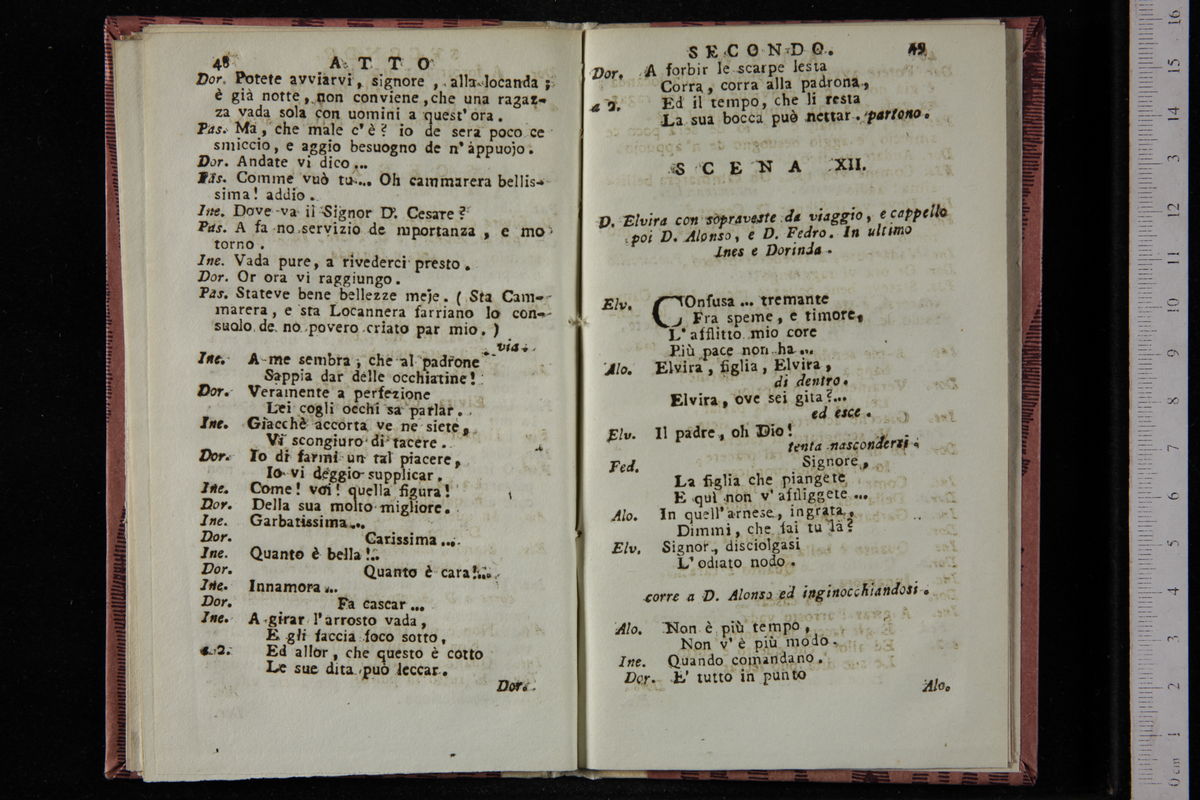 48 ATTO
Dor. Potete avviarvi, signore, alla locanda;
è già notte, non conviene, che una ragaz-
za vada sola con uomini a quest' ora.
Pas. Ma, che male c'è? io de sera poco ce
smiccio, e aggio besuogno de n'appuojo.
Dor. Andate vi dico...
Pas. Comme vuò tu... Oh cammarera bellis-
sima! addio.
Ine. Dove va il Signor D. Cesare?
Pas. A fa no servizio de mportanza, e mo
torno.
Ine. Vada pure, a rivederci presto.
Dor. Or ora vi raggiungo.
Pas. Stateve bene bellezze meje. (Sta Cam-
marera, e sta Locannera farriano lo con-
suolo de no povero criato par mio.)
via.
Ine. A me sembra, che al padrone
Sappia dar delle occhiatine!
Dor. Veramente a perfezione
Lei cogli occhi sa parlar.
Ine. Giacchè accorta ve ne siete,
Vi scongiuro di tacere.
Dor. Io di farmi un tal piacere,
Io vi deggio supplicar.
Ine. Come! voi! quella figura!
Dor. Della sua molto migliore.
Ine. Garbatissima...
Dor. Carissima...
Ine. Quanto è bella!..
Dor. Quanto è cara!..
Ine. Innamora...
Dor. Fa cascar...
Ine. A girar l'arrosto vada,
E gli faccia foco sotto,
a 2. Ed allor, che questo è cotto
Le sue dita può leccar.
Dor.
SECONDO. 49
Dor. A forbir le scarpe lesta
Corra, corra alla padrona,
a 2. Ed il tempo, che li resta
La sua bocca può nettar. partono.
SCENA XII.
D. Elvira con sopraveste da viaggio, e cappello
poi D. Alonso, e D. Fedro. In ultimo
Ines e Dorinda.
Elv. COnfusa... tremante
Fra speme, e timore,
L'afflitto mio core
Più pace non ha...
Alo. Elvira, figlia, Elvira,
di dentro.
Elvira, ove sei gita?...
ed esce.
Elv. Il padre, oh Dio!
tenta nascondersi.
Fed. Signore,
La figlia che piangete
E quì non v' affliggete...
Alo. In quell'arnese, ingrata,
Dimmi, che fai tu là?
Elv. Signor, disciolgasi
L'odiato nodo.
corre a D. Alonso ed inginocchiandosi.
Alo. Non è più tempo,
Non v'è più modo.
Ine. Quando comandano.
Dor. E' tutto in punto
Alo.
16
15
14
13
12
11
10
9
8
7
6
5
4
3
2
1
0 cm